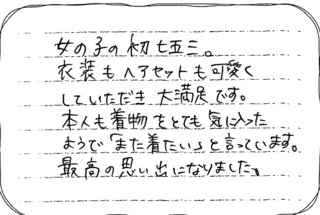 女の子の初七五三。
衣装もヘアセットも可愛く
していただき大満足です。
本人も着物をとても気に入った
ようで「また着たい」と言っています。
最高の思い出になりました。